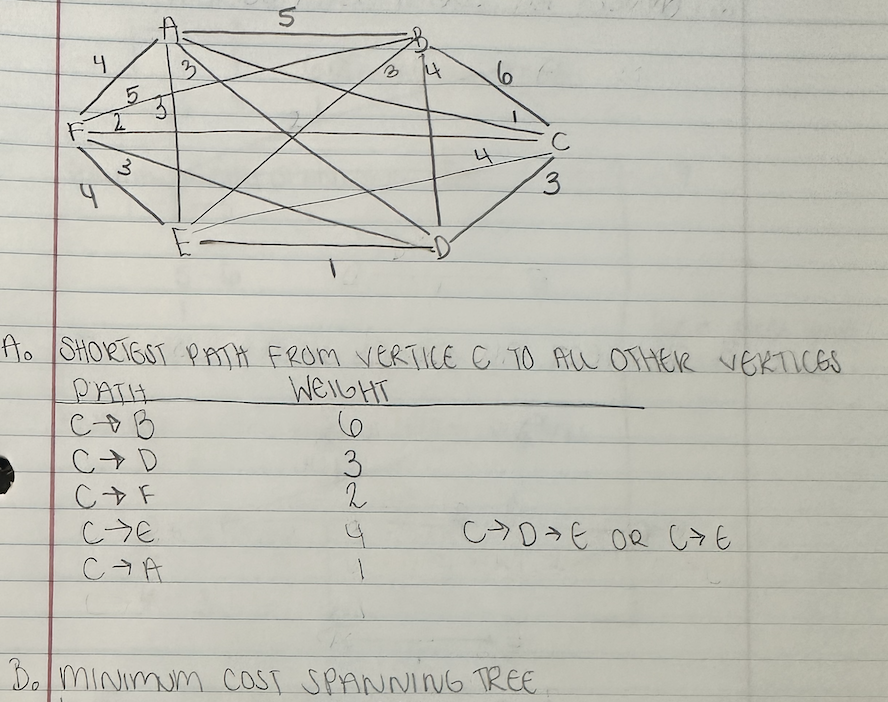 5
A
B
4
3
3
4
6
5
3
F
2
1
C
3
4
3
4
E
D
1
A. SHORTEST PATH FROM VERTICE C TO ALL OTHER VERTICES
PATH WEIGHT
C→B 6
C→D 3
C→F 2
C→E 4 C→D→E OR C→E
C→A 1
B. MINIMUM COST SPANNING TREE